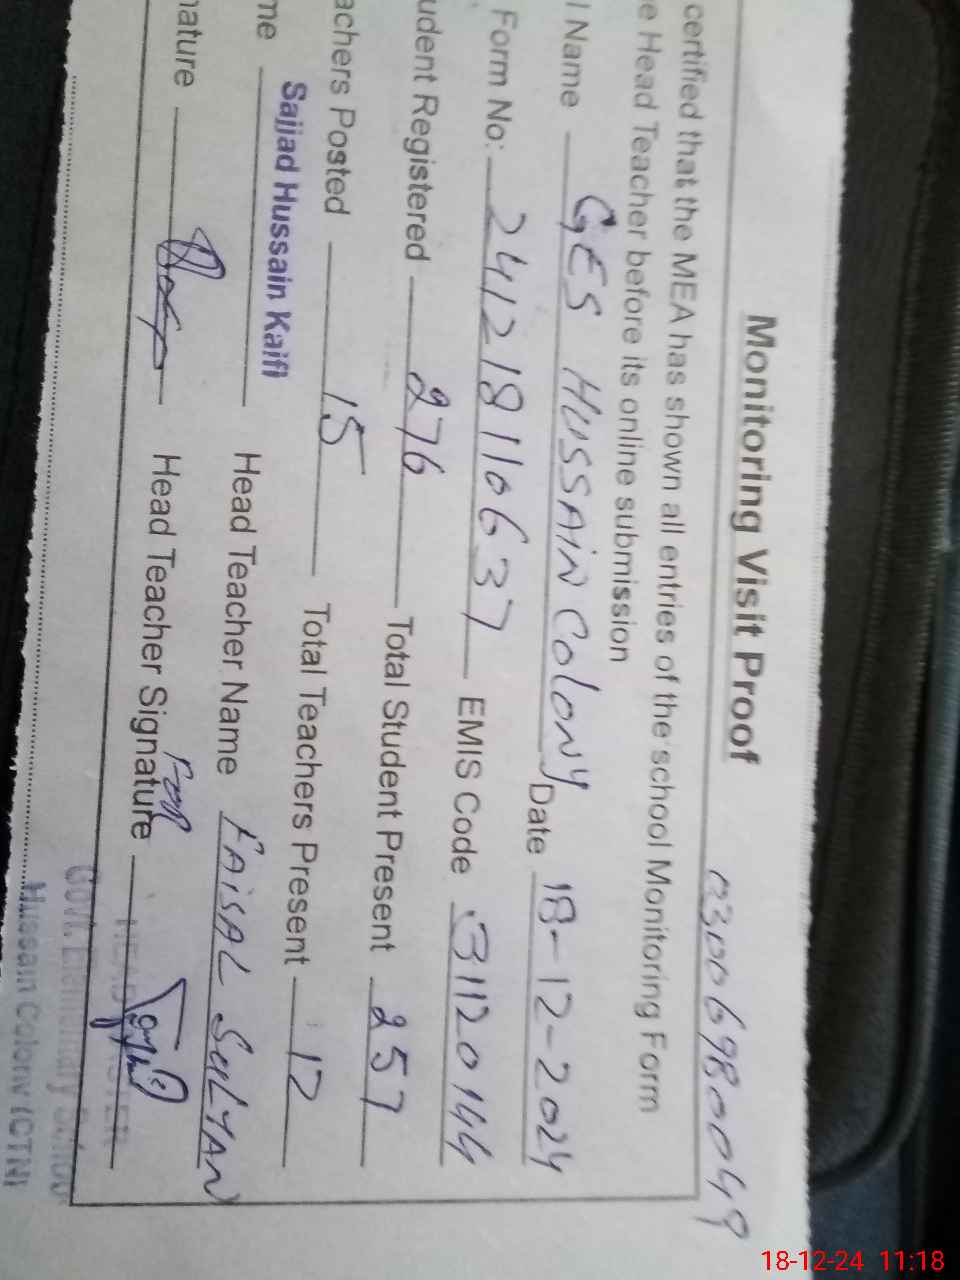 03006980049
Monitoring Visit Proof
certified that the MEA has shown all entries of the school Monitoring Form
e Head Teacher before its online submission
l Name GES HUSSAIN COLONY Date 18-12-2024
Form No: 241218110637 EMIS Code 31120144
udent Registered 276 Total Student Present 257
achers Posted 15 Total Teachers Present 12
me Sajjad Hussain Kaifi Head Teacher Name FAISAL SULTAN
nature Head Teacher Signature For
HEAD MASTER
Govt. Elementary School
Hussain Colony (CTN)
18-12-24 11:18